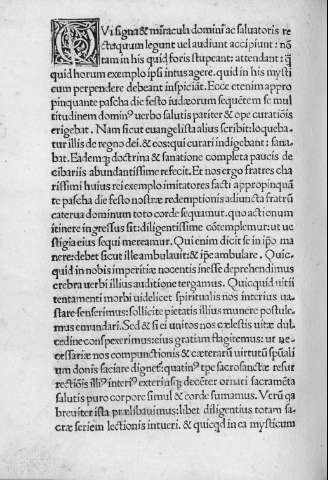 QVi signa & miracula domini ac saluatoris re
cte quum legunt uel audiunt accipiunt: nō
tam in his quid foris stupeant: attendant: q̃
quid horum exemplo ipsi intus agere. quid in his mysti
cum perpendere debeant inspiciāt. Ecce etenim appro
pinquante pascha die festo iudæorum sequētem se mul
titudinem domin⁹ uerbo salutis pariter & ope curatiōis
erigebat. Nam sicut euangelista alius scribit: loqueba-
tur illis de regno dei. & eos: qui curari indigebant: sana-
bat. Eademq; doctrina & sanatione completa paucis de
cibariis abundantissime refecit. Et nos ergo fratres cha
rissimi huius rei exemplo imitatores facti appropinquā
te pascha die festo nostræ redemptionis adiuncta fratrū
caterua dominum toto corde sequamur. quo actionum
itinere ingressus sit: diligentissime cōtemplemur: ut ue-
stigia eius sequi mereamur. Qui enim dicit se in ip̄o ma
nere: debet sicut ille ambulauit: & ip̄e ambulare. Quic-
quid in nobis imperitiæ nocentis inesse deprehendimus
crebra uerbi illius auditione tergamus. Quicquid uitii
tentamenti morbi uidelicet spiritualis nos interius ua-
stare senserimus: sollicite pietatis illius munere postule-
mus emundari. Sed & si ei unitos nos cælestis uitæ dul-
cedine conspexerimus: eius gratiam flagitemus: ut ne-
cessariæ nos compunctionis & cæterarū uirtutū sp̄uali
um donis saciare dignet̃: quatin⁹ tp̄e sacrosanctæ resur
rectiōis illi⁹ interi⁹ exteriusq; decēter ornati sacramēta
salutis puro corpore simul & corde sumamus. Verū q̃a
breuiter ista prælibauimus: libet diligentius totam sa-
cræ seriem lectionis intueri. & quicqd in ea mysticum